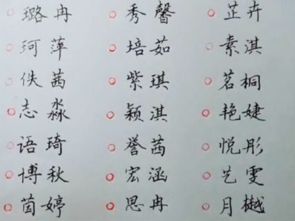 璐冉 秀馨 芷卉
珂萍 培茹 素淇
佚茜 紫琪 茗桐
志淼 颖淇 艳婕
语琦 誉茜 悦彤
博秋 宏涵 艺雯
茵婷 思冉 月樾